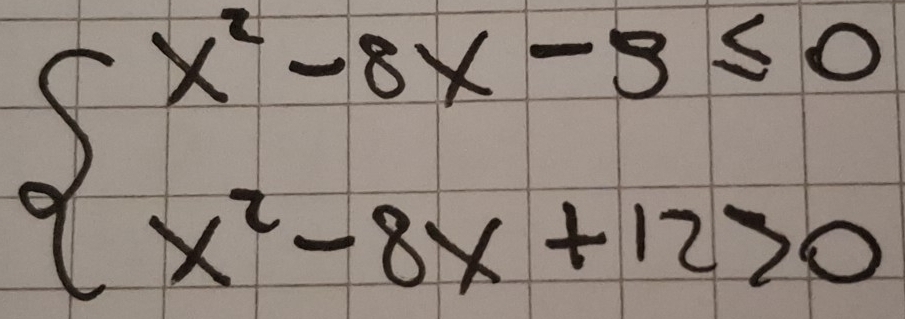 x² - 8x - 9 ≤ 0
x² - 8x + 12 > 0